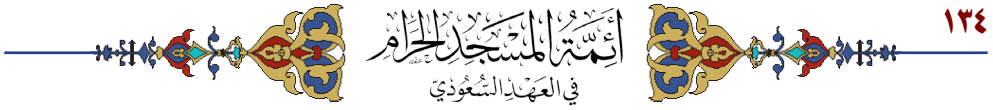 ١٣٤
أَئِمَّةُ المَسْجِدِ الحَرَامِ
في العَهْدِ السُّعُودِيّ